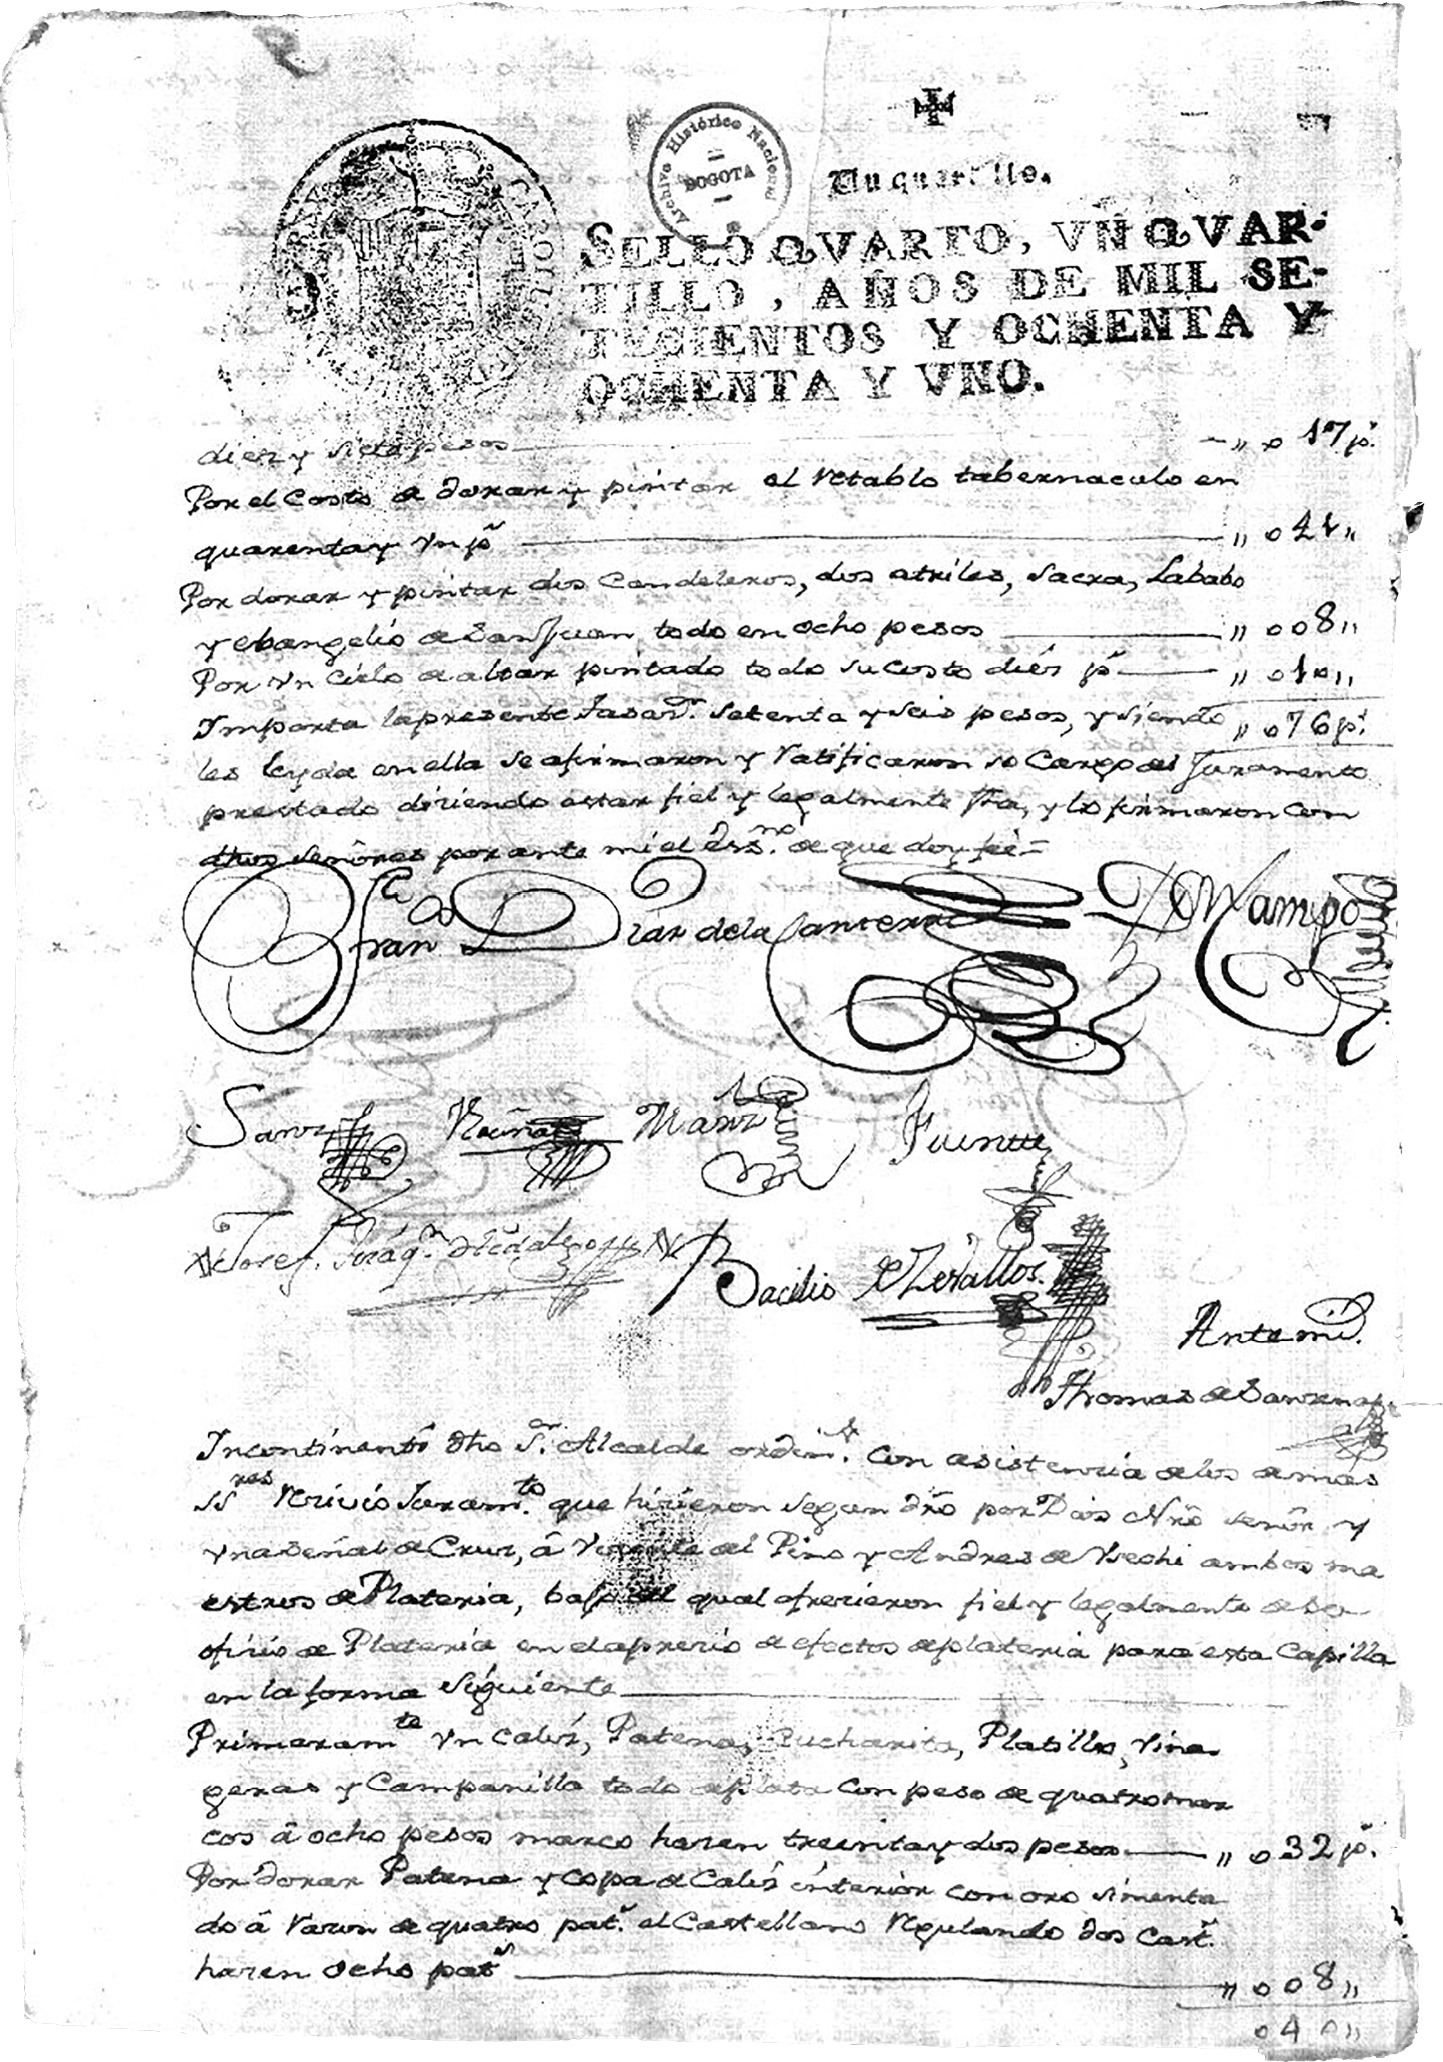 Archivo Histórico Nacional
BOGOTA
Un quartillo.
SELLO QVARTO, VN QVAR-
TILLO, AÑOS DE MIL SE-
TECIENTOS Y OCHENTA Y
OCHENTA Y VNO.
diez y siete pesos — „ 0 17 p.s
Por el Costo de dorar y pintar el retablo tabernaculo en
quarenta y vn p.s — „ 0 41 „
Por dorar y pintar dos Candeleros, dos atriles, Sacra, Lababo
y ebangelio de San Juan, todo en ocho pesos — „ 0 0 8 „
Por vn Cielo de altar pintado todo su costo diés p.s — „ 0 1 0 „
Importa la presente tasas.n Setenta y seis pesos, y siendo „ 0 76 p.s
les leyda en ella se afirmaron y ratificaron so Cargo del Juramento
prestado diziendo estar fiel y legalmente fha, y lo firmaron con
dhos señores por ante mi el Ess.no de que doy fee =
Fran.co Diaz de la Canterra
Campo
Sanz
Manz
Fuente
Josef
Bacilio de Zevallos.
Ante mi.
Thomas de
Incontinenti dho S.or Alcalde orden.o con asistencia de los demas
SS.res Recivió Juram.to que hizieron segun dro por Dios Nro señor y
vna señal de Cruz, â Vizente del Pino y Andres de Vsechi ambos ma
estros de Plateria, bajo del qual ofrezieron fiel y legalmente de su
ofizio de Plateria en el aprezio de efectos de plateria para esta Capilla
en la forma siguiente —
Primeram.te vn caliz, Patena, Cucharita, Platillo, vina
geras y Campanilla todo de plata con peso de quatro mar
cos â ocho pesos marco hazen treinta y dos pesos — „ 0 32 p.s
Por dorar Patena y copa de Caliz interior con oro simenta
do â razon de quatro pat.s el Castellano regulando dos Cast.s
hazen ocho pat.s — „ 0 0 8 „
0 4 0 „